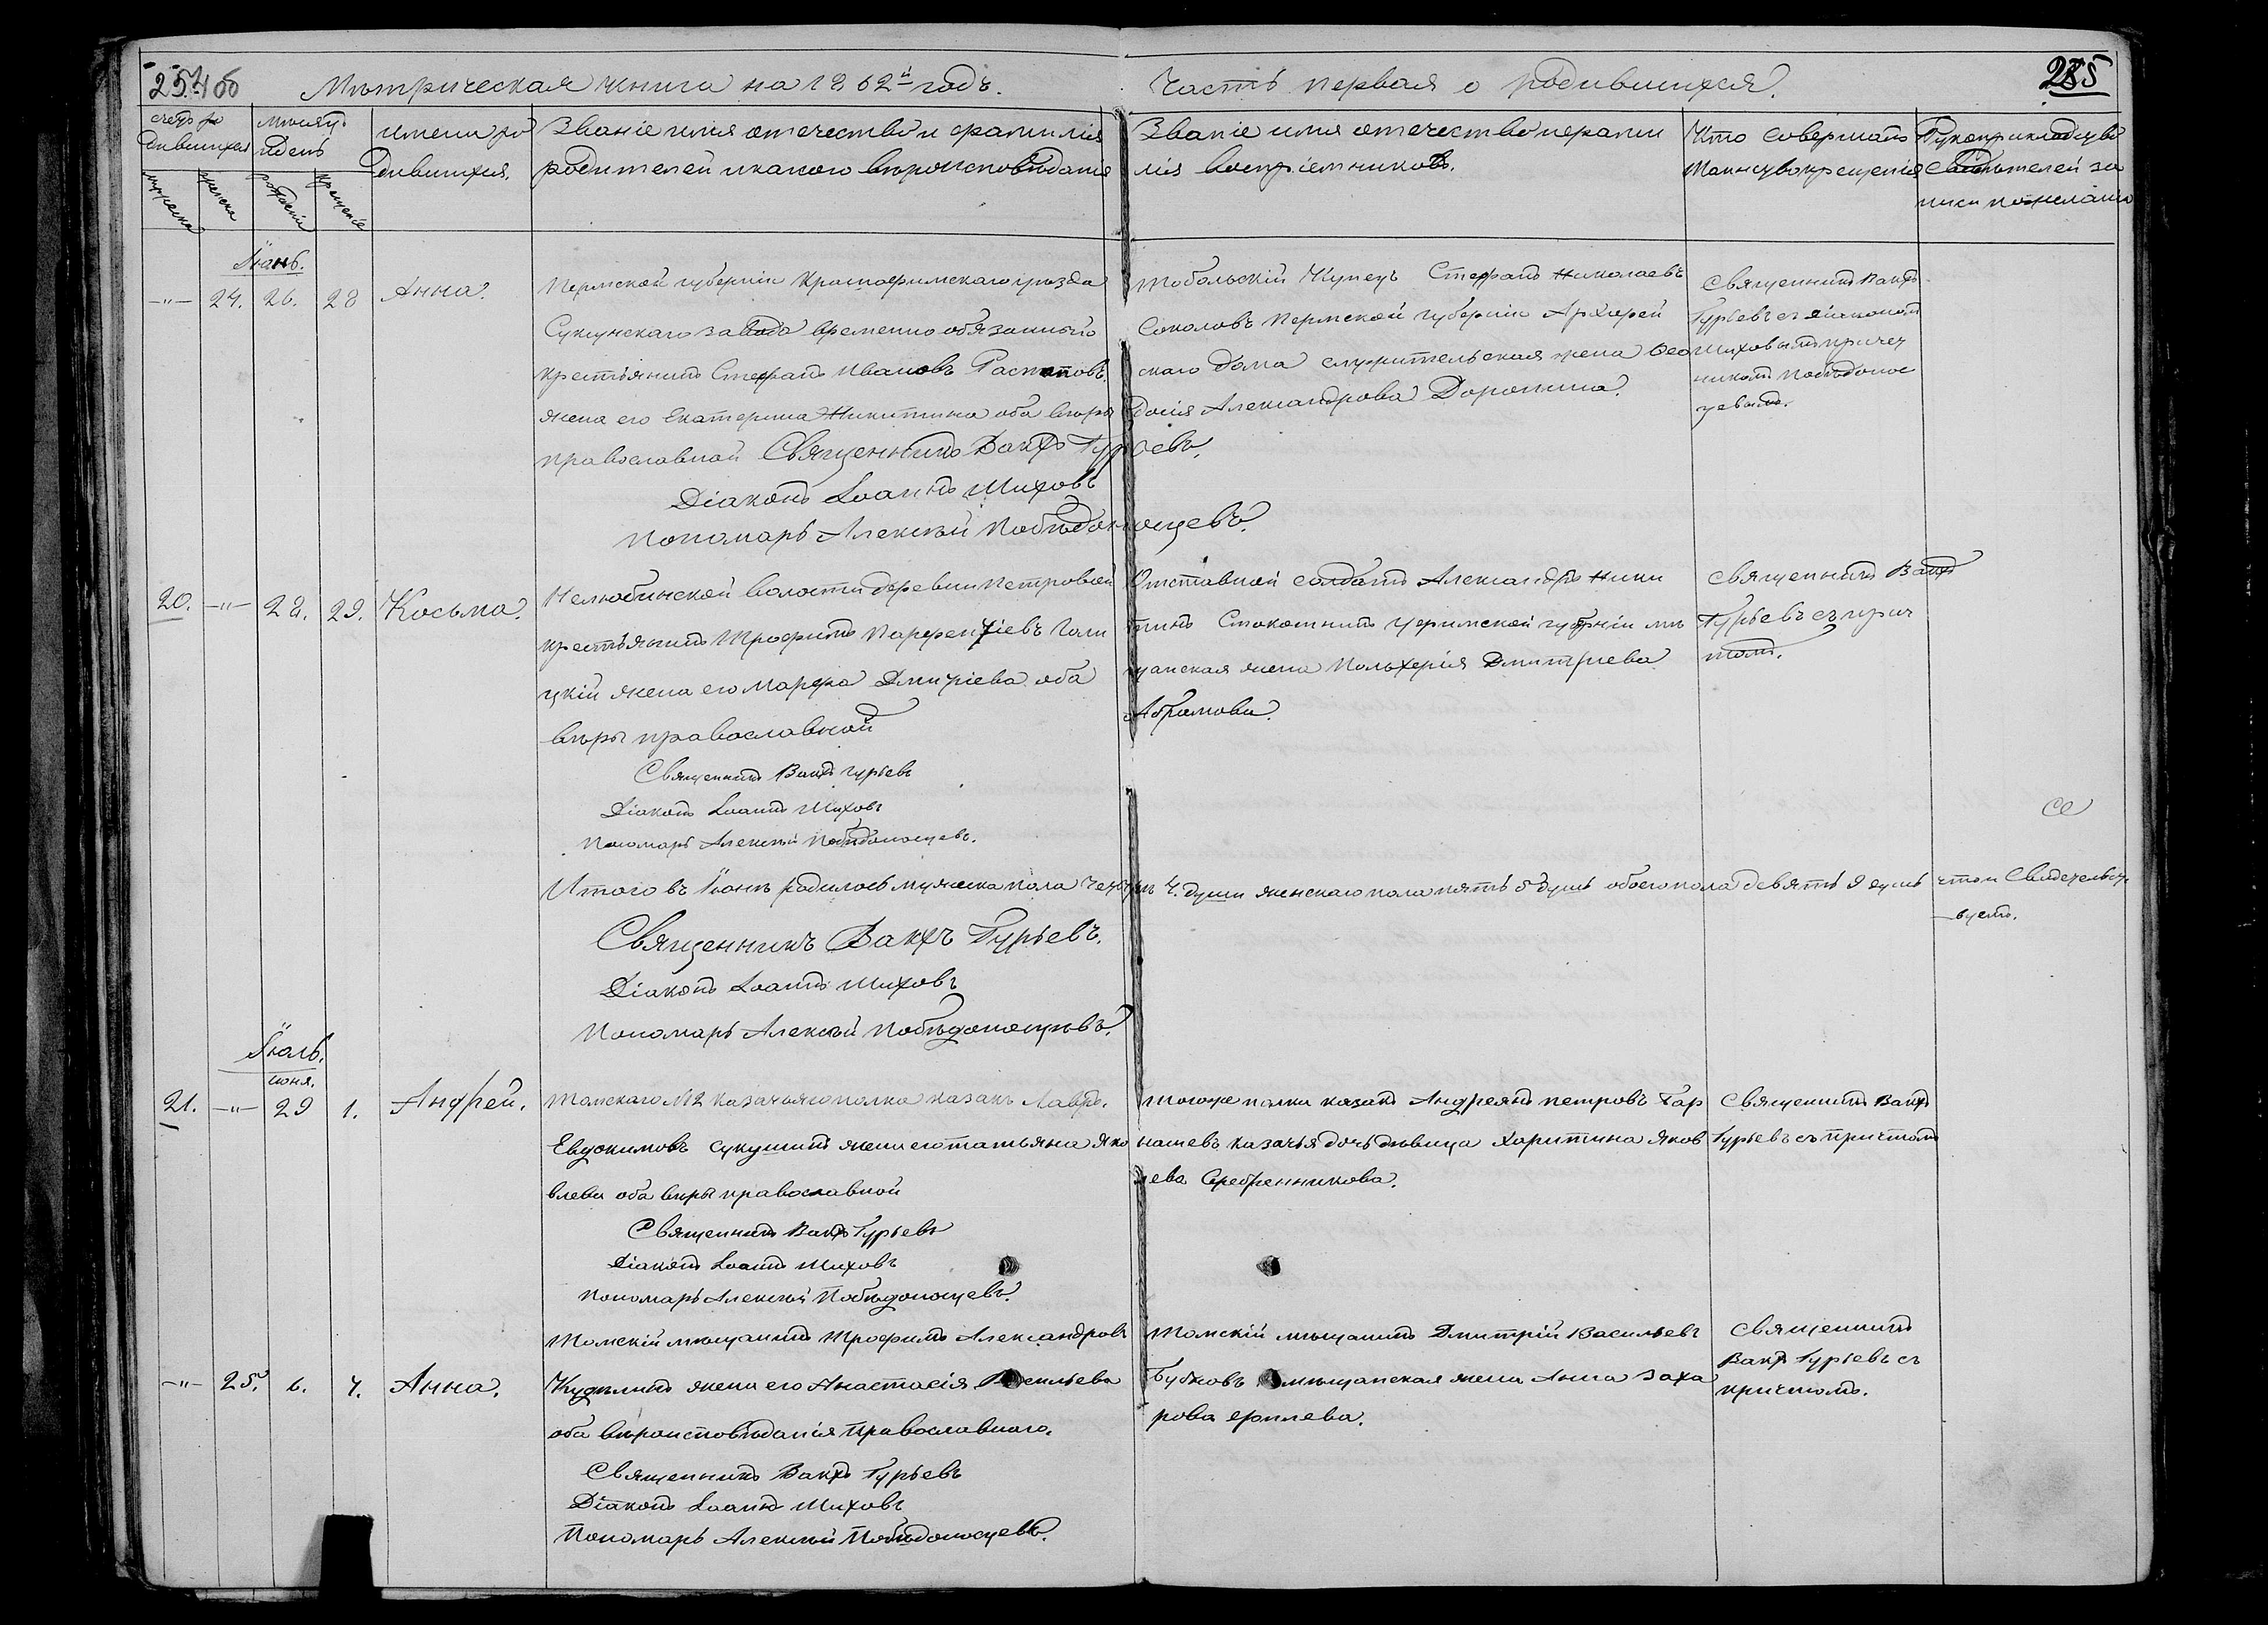 254об Метрическая книга на 1862й годъ. Часть первая о родившихся. 285
счетъ ро
дившихся
мужеска
женска
месяцъ
и день
рожденія
крещенія
имена ро
дившихся.
Званіе имя отечество и фамилія
родителей и какого вероисповеданія
Званіе имя отечество и фами
лія воспріемниковъ.
Кто совершалъ
таинство крещенія
Рукоприкладство
свидетелей за
писи по желанію
Іюнь.
-"- 24. 26. 28 Анна.
Пермской губерніи Красноофимскаго уезда
Суксунскаго завода временно обязанный
крестьянинъ Стефанъ Ивановъ Распоповъ
жена его Екатерина Никитина оба веры
православной Священникъ Вакхъ Гурьевъ.
Діаконъ Іоаннъ Миховъ
Пономарь Алексей Победоносцевъ.
Тобольскій Купецъ Стефанъ Николаевъ
Соколовъ Пермской губерніи Архіерей
скаго дома служительская жена Фео
досія Александрова Доронина.
Священникъ Вакхъ
Гурьевъ съ діакономъ
Миховымъ причет
никомъ Победонос
цевымъ.
20. -"- 28. 29. Косьма.
Нелюбинской волости деревни Петровой
крестьянинъ Трофимъ Парфентіевъ Гали
цкій жена его Марфа Дмитріева оба
веры православной
Священникъ Вакхъ Гурьевъ
Діаконъ Іоаннъ Миховъ
Пономарь Алексей Победоносцевъ.
Отставной солдатъ Александръ Ники
тинъ губерніи ме
щанская жена Полхерія Дмитріева
Абрамова.
Священникъ Вакхъ
Гурьевъ съ прич
томъ.
Итого въ Іюне родилось мужеска пола четыре 4. души женскаго пола пять 5 душъ обоего пола девять 9 душъ что и Свидетельст
вуемъ.
Священникъ Вакхъ Гурьевъ.
Діаконъ Іоаннъ Миховъ
Пономарь Алексей Победоносцевъ.
Іюль.
июня.
21. -"- 29 1. Андрей.
Томскаго №12 казачьяго полка казакъ Лавръ
Евдокимовъ жена его татьяна Яко
влева оба веры православной
Священникъ Вакхъ Гурьевъ
Діаконъ Іоаннъ Миховъ
Пономарь Алексей Победоносцевъ.
Тогоже полка казакъ Андреянъ петровъ Бар
нашевъ казачья дочь девица Харитина Яков
лева Серебренникова.
Священникъ Вакхъ
Гурьевъ съ причтомъ
-"- 25. 6. 7. Анна.
Томскій мещанинъ Трофимъ Александровъ
жена его Анастасія Васильева
оба вероисповеданія Православнаго.
Священникъ Вакхъ Гурьевъ
Діаконъ Іоаннъ Миховъ
Пономарь Алексей Победоносцевъ.
Томскій мещанинъ Дмитрій Васильевъ
Бубновъ мещанская жена Анна Заха
рова
Священникъ
Вакхъ Гурьевъ съ
причтомъ.